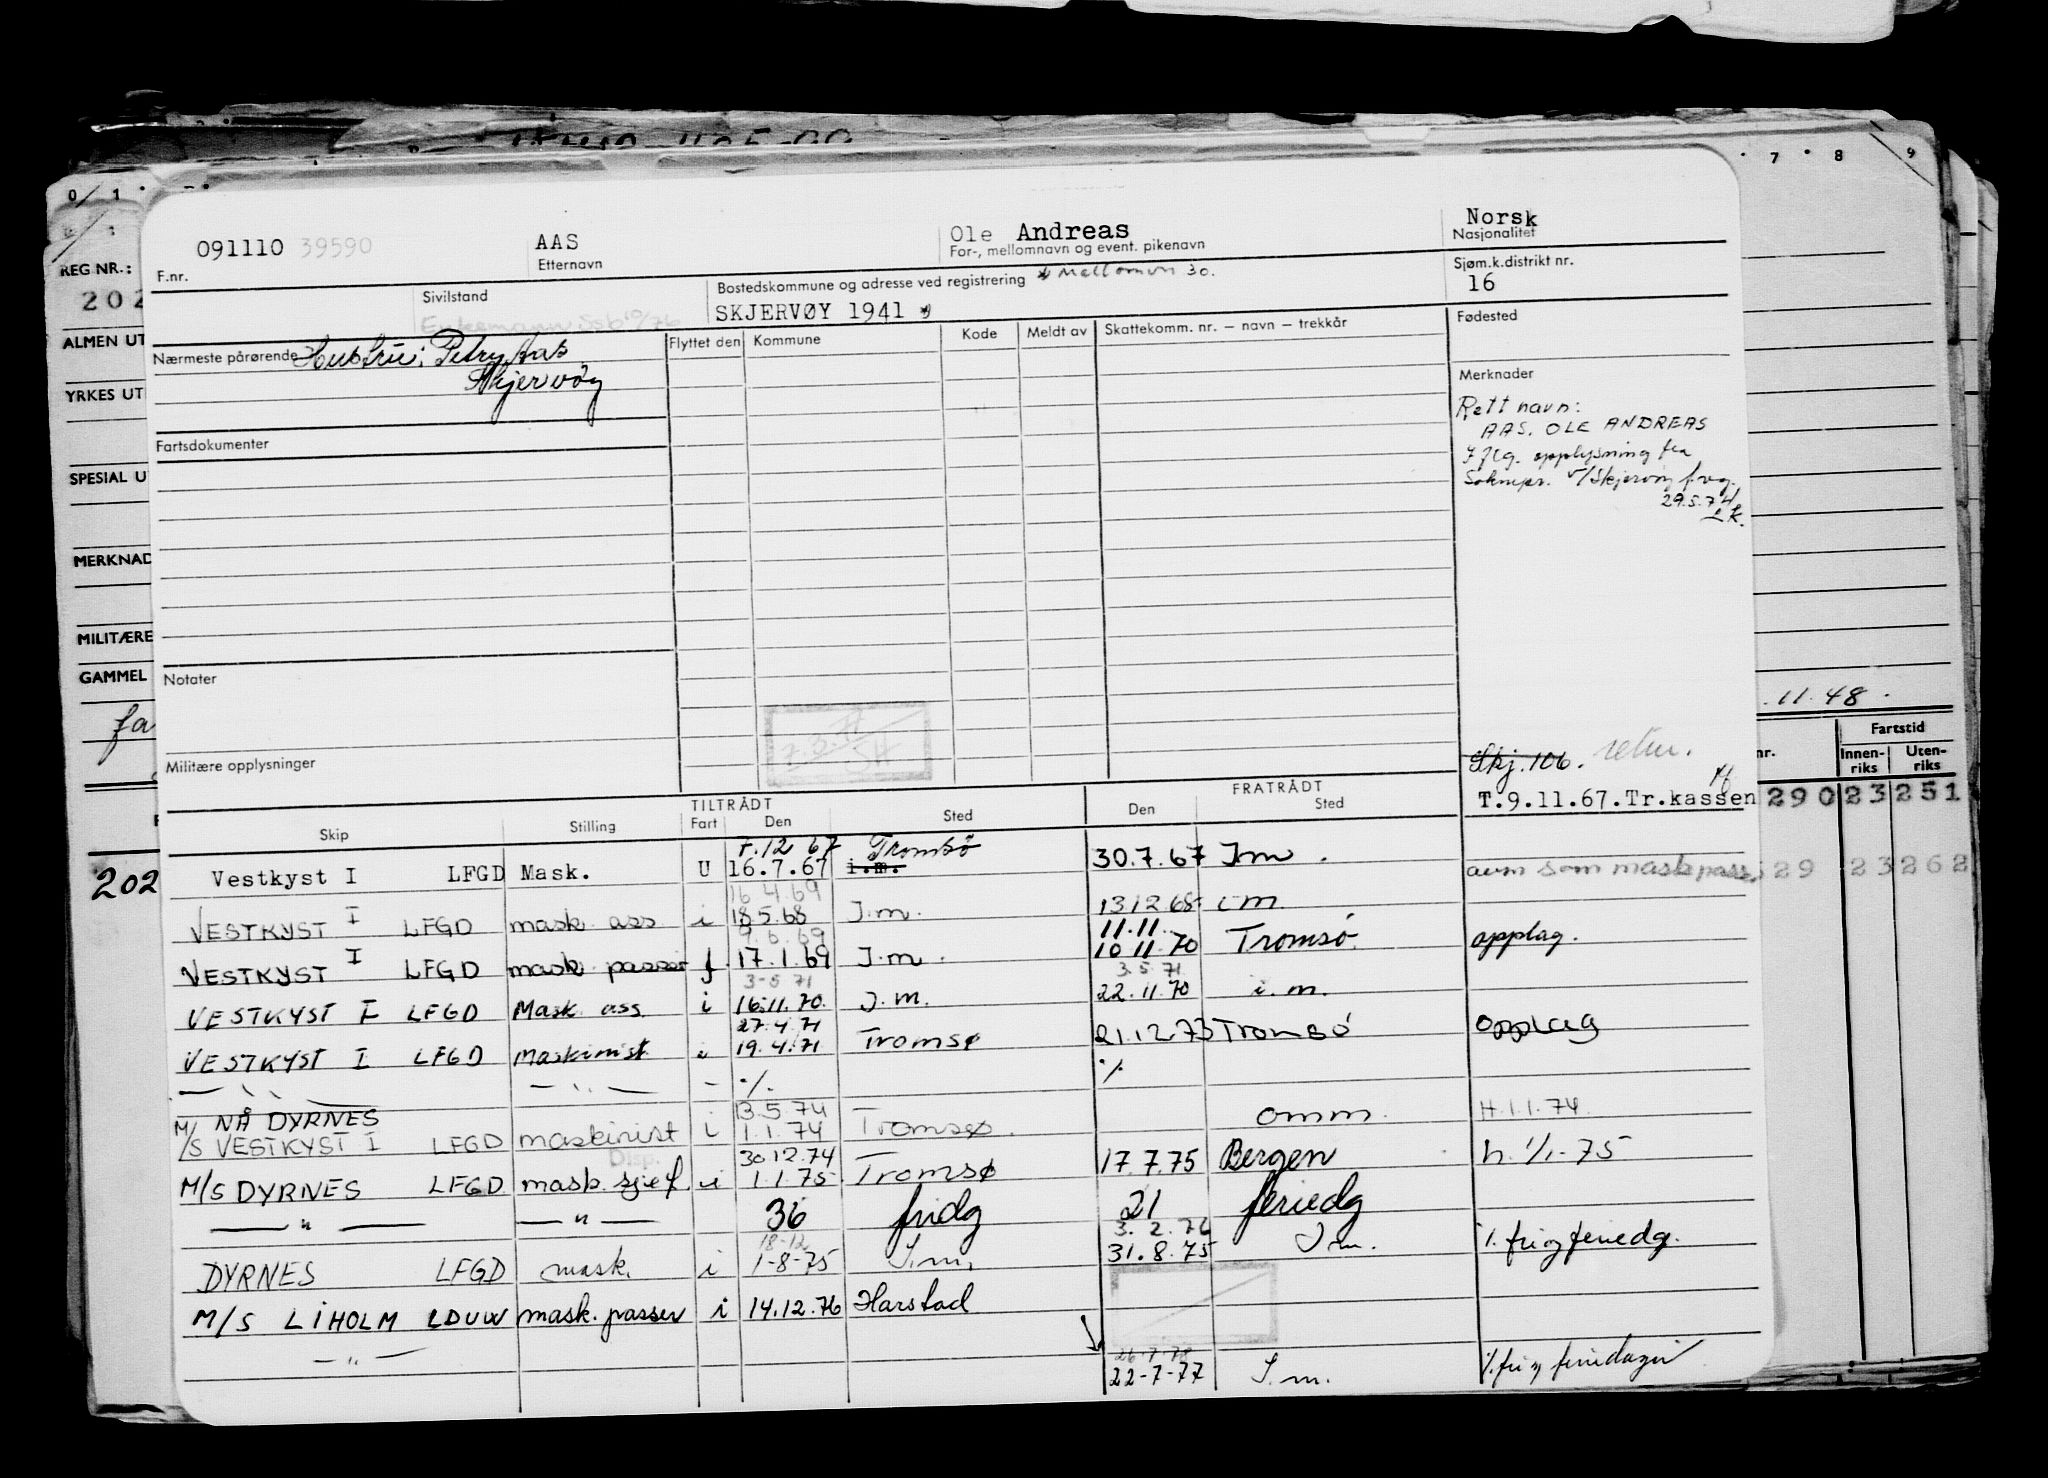 0 1 7 8 9
REG NR.:
202
ALMEN UT
YRKES UT
SPECIAL U
MERKNAD
MILITÆRE
GAMMEL
fa
202
091110 39590
F.nr.
AAS
Etternavn
Ole Andreas
For-, mellomnavn og event. pikenavn
Norsk
Nasjonalitet
Sivilstand
Enkemann
Bostedskommune og adresse ved registrering
SKJERVØY 1941
Sjøm.k.distrikt nr.
16
Nærmeste pårørende Hustru: Petry Aas
Skjervöy
Flyttet den Kommune Kode Meldt av Skattekomm. nr. – navn – trekkår
Fødested
Merknader
Rett navn:
AAS, OLE ANDREAS
Iflg. opplysning fra
Soknepr. v/Skjervöy
29.5.74
Fartsdokumenter
Notater
Militære opplysninger
Skj. 106. retur.
T.9.11.67.Tr.kassen
11.48.
nr. Fartstid
Innen-riks Uten-riks
290 23 251
29 23 262
TILTRÅDT FRATRÅDT
Skip Stilling Fart Den Sted Den Sted
7.12 67 Tromsö
Vestkyst I LFGD Mask. U 16.7.67 i.m. 30.7.67 Im. som maskpass.
16 4.69
VESTKYST I LFGD mask ass i 18.5.68 I.m. 13.12.68 i m
9.6.69 11.11.
VESTKYST I LFGD mask passer f 17.1.69 I.m. 10 11.70 Tromsö opplag.
3-5 71 3.5.71
VESTKYST I LFGD Mask. ass. i 16.11.70. I.m. 22.11.70 i.m.
27.4.71
VESTKYST I LFGD Maskinist i 19.4.71 Tromsø 21.12.73 Tromsö opplag
— " — — " — – ./. ./.
NÅ DYRNES 13.5.74
M/S VESTKYST I LFGD maskinist i 1.1.74 Tromsø. omm. H.1.1.74.
Disp. 30.12.74
M/S DYRNES LFGD mask. sjef. i 1.1.75 Tromsø 17.7.75 Bergen h. 1/1-75
— " — — " — 36 fridg 21 feriedg
18-12 3.2.76
DYRNES LFGD mask. i 1-8-75 I.m. 31.8.75 I m. /. fri og feriedg.
M/S LIHOLM LDUW mask. passer i 14.12.76 Harstad
26.7.78
— " — 22-7-77 I.m. /. fri og feriedager